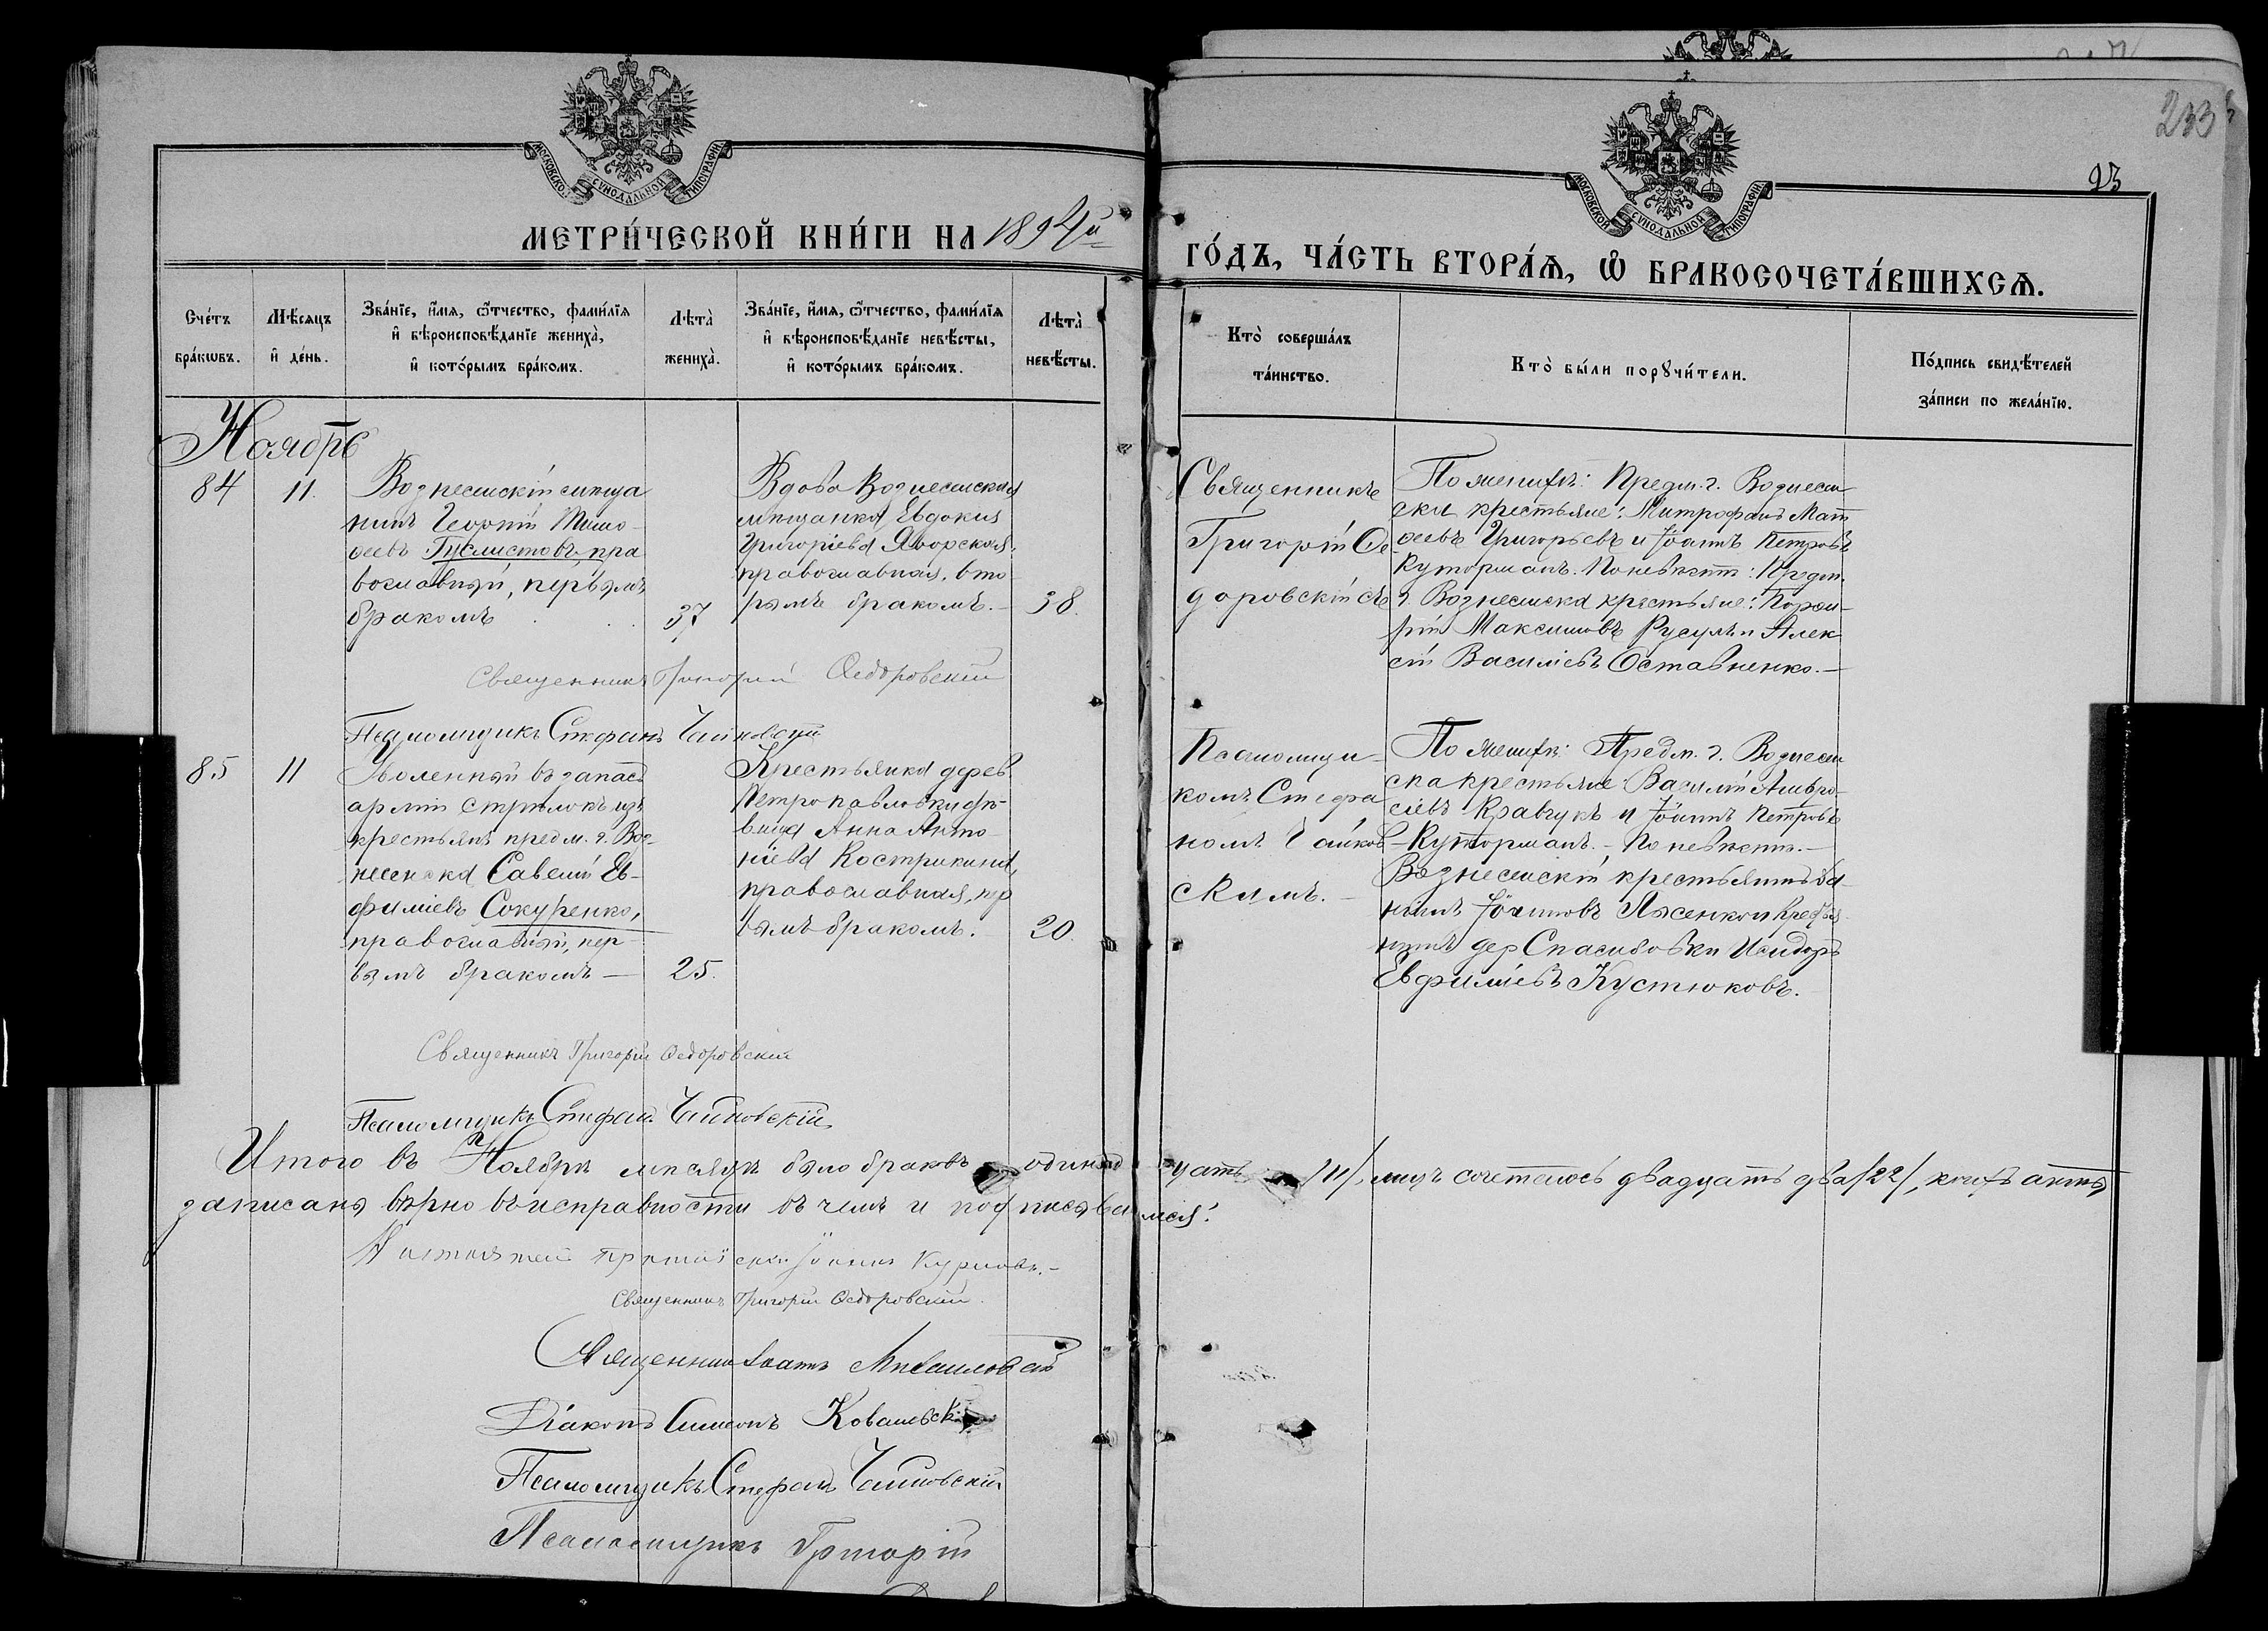 233
23
МОСКОВСКОЙ СУНОДАЛЬНОЙ ТИПОГРАФІИ
МОСКОВСКОЙ СУНОДАЛЬНОЙ ТИПОГРАФІИ
МЕТРИ́ЧЕСКОЙ КНИ́ГИ НА 1894й
ГО́ДЪ, ЧА́СТЬ ВТОРА́Ѧ, Ѽ БРАКОСОЧЕТА́ВШИХСѦ.
Сче́тъ бра́кѡвъ.
Мѣ́сяцъ и҆ де́нь.
Зва́нїе, и҆́мѧ, ѻ҆́тчество, фами́лїѧ
и҆ вѣроисповѣ́данїе жениха̀,
и҆ кото́рымъ бра́комъ.
Лѣта̀ жениха̀.
Зва́нїе, и҆́мѧ, ѻ҆́тчество, фами́лїѧ
и҆ вѣроисповѣ́данїе невѣ́сты,
и҆ кото́рымъ бра́комъ.
Лѣта̀ невѣ́сты.
Кто̀ соверша́лъ
та́инство.
Кто̀ бы́ли порꙋчи́тели.
По́дпись свидѣ́телей
за́писи по жела́нїю.
Ноябрь
84
11.
Вознесенскій мѣща
нинъ Георгій Тимо-
феевъ Гуслистовъ, пра
вославный, первымъ
бракомъ
37
Вдова Вознесенская
мѣщанка, Евдокія
Григоріева Яворская,
православная, вто
рымъ бракомъ.-
38.
Священникъ
Григорій Ѳе-
доровскій съ
По женихѣ: Предм. г. Вознесен-
ска крестьяне: Митрофанъ Мат
феевъ Григорьевъ и Іоаннъ Петровъ
Куторманъ. По невѣстѣ: Предм.
г. Вознесенска крестьяне: Порфи-
рій Максимовъ Русулъ и Алек
сій Василіевъ Оставненко.-
Священникъ Григорій Ѳедоровскій
Псаломщикъ Стефанъ Чайковскій
85
11
Уволенный въ запасъ
арміи стрѣлокъ изъ
крестьянъ предм. г. Воз-
несенска Савелій Ев-
фиміевъ Сокуренко,
православный, пер-
вымъ бракомъ —
25.
Крестьянка дерев.
Петропавловки дѣ-
вица Анна Анто-
ніева Кострикина,
православная, пер
вымъ бракомъ.
20.
Псаломщи-
комъ Стефа
номъ Чайков-
скимъ.-
По женихѣ: Предм. г. Вознесен
ска крестьяне: Василій Амвро-
сіевъ Кравчукъ и Іоаннъ Петровъ
Куторманъ.- По невѣстѣ.-
Вознесенскій крестьянинъ
Іоанновъ Лясенко и крестья
нинъ дер Спасибовки Исидоръ
Евфиміевъ Кустюковъ.
Священникъ Григорій Ѳедоровскій
Псаломщикъ Стефанъ Чайковскій
Итого въ Ноябрѣ мѣсяцѣ было браковъ одинад цать /11/, лицъ сочеталось двадцать два /22/, книга акты
записаны вѣрно въ исправности въ чемъ и подписываемся:
Настоятель протоіерей Іоаннъ Курловъ.-
Священникъ Григорій Ѳедоровскій.
Священникъ Іоаннъ
Діаконъ Симеонъ Ковальскій
Псаломщикъ Стефанъ Чайковскій
Псаломщикъ Григорій